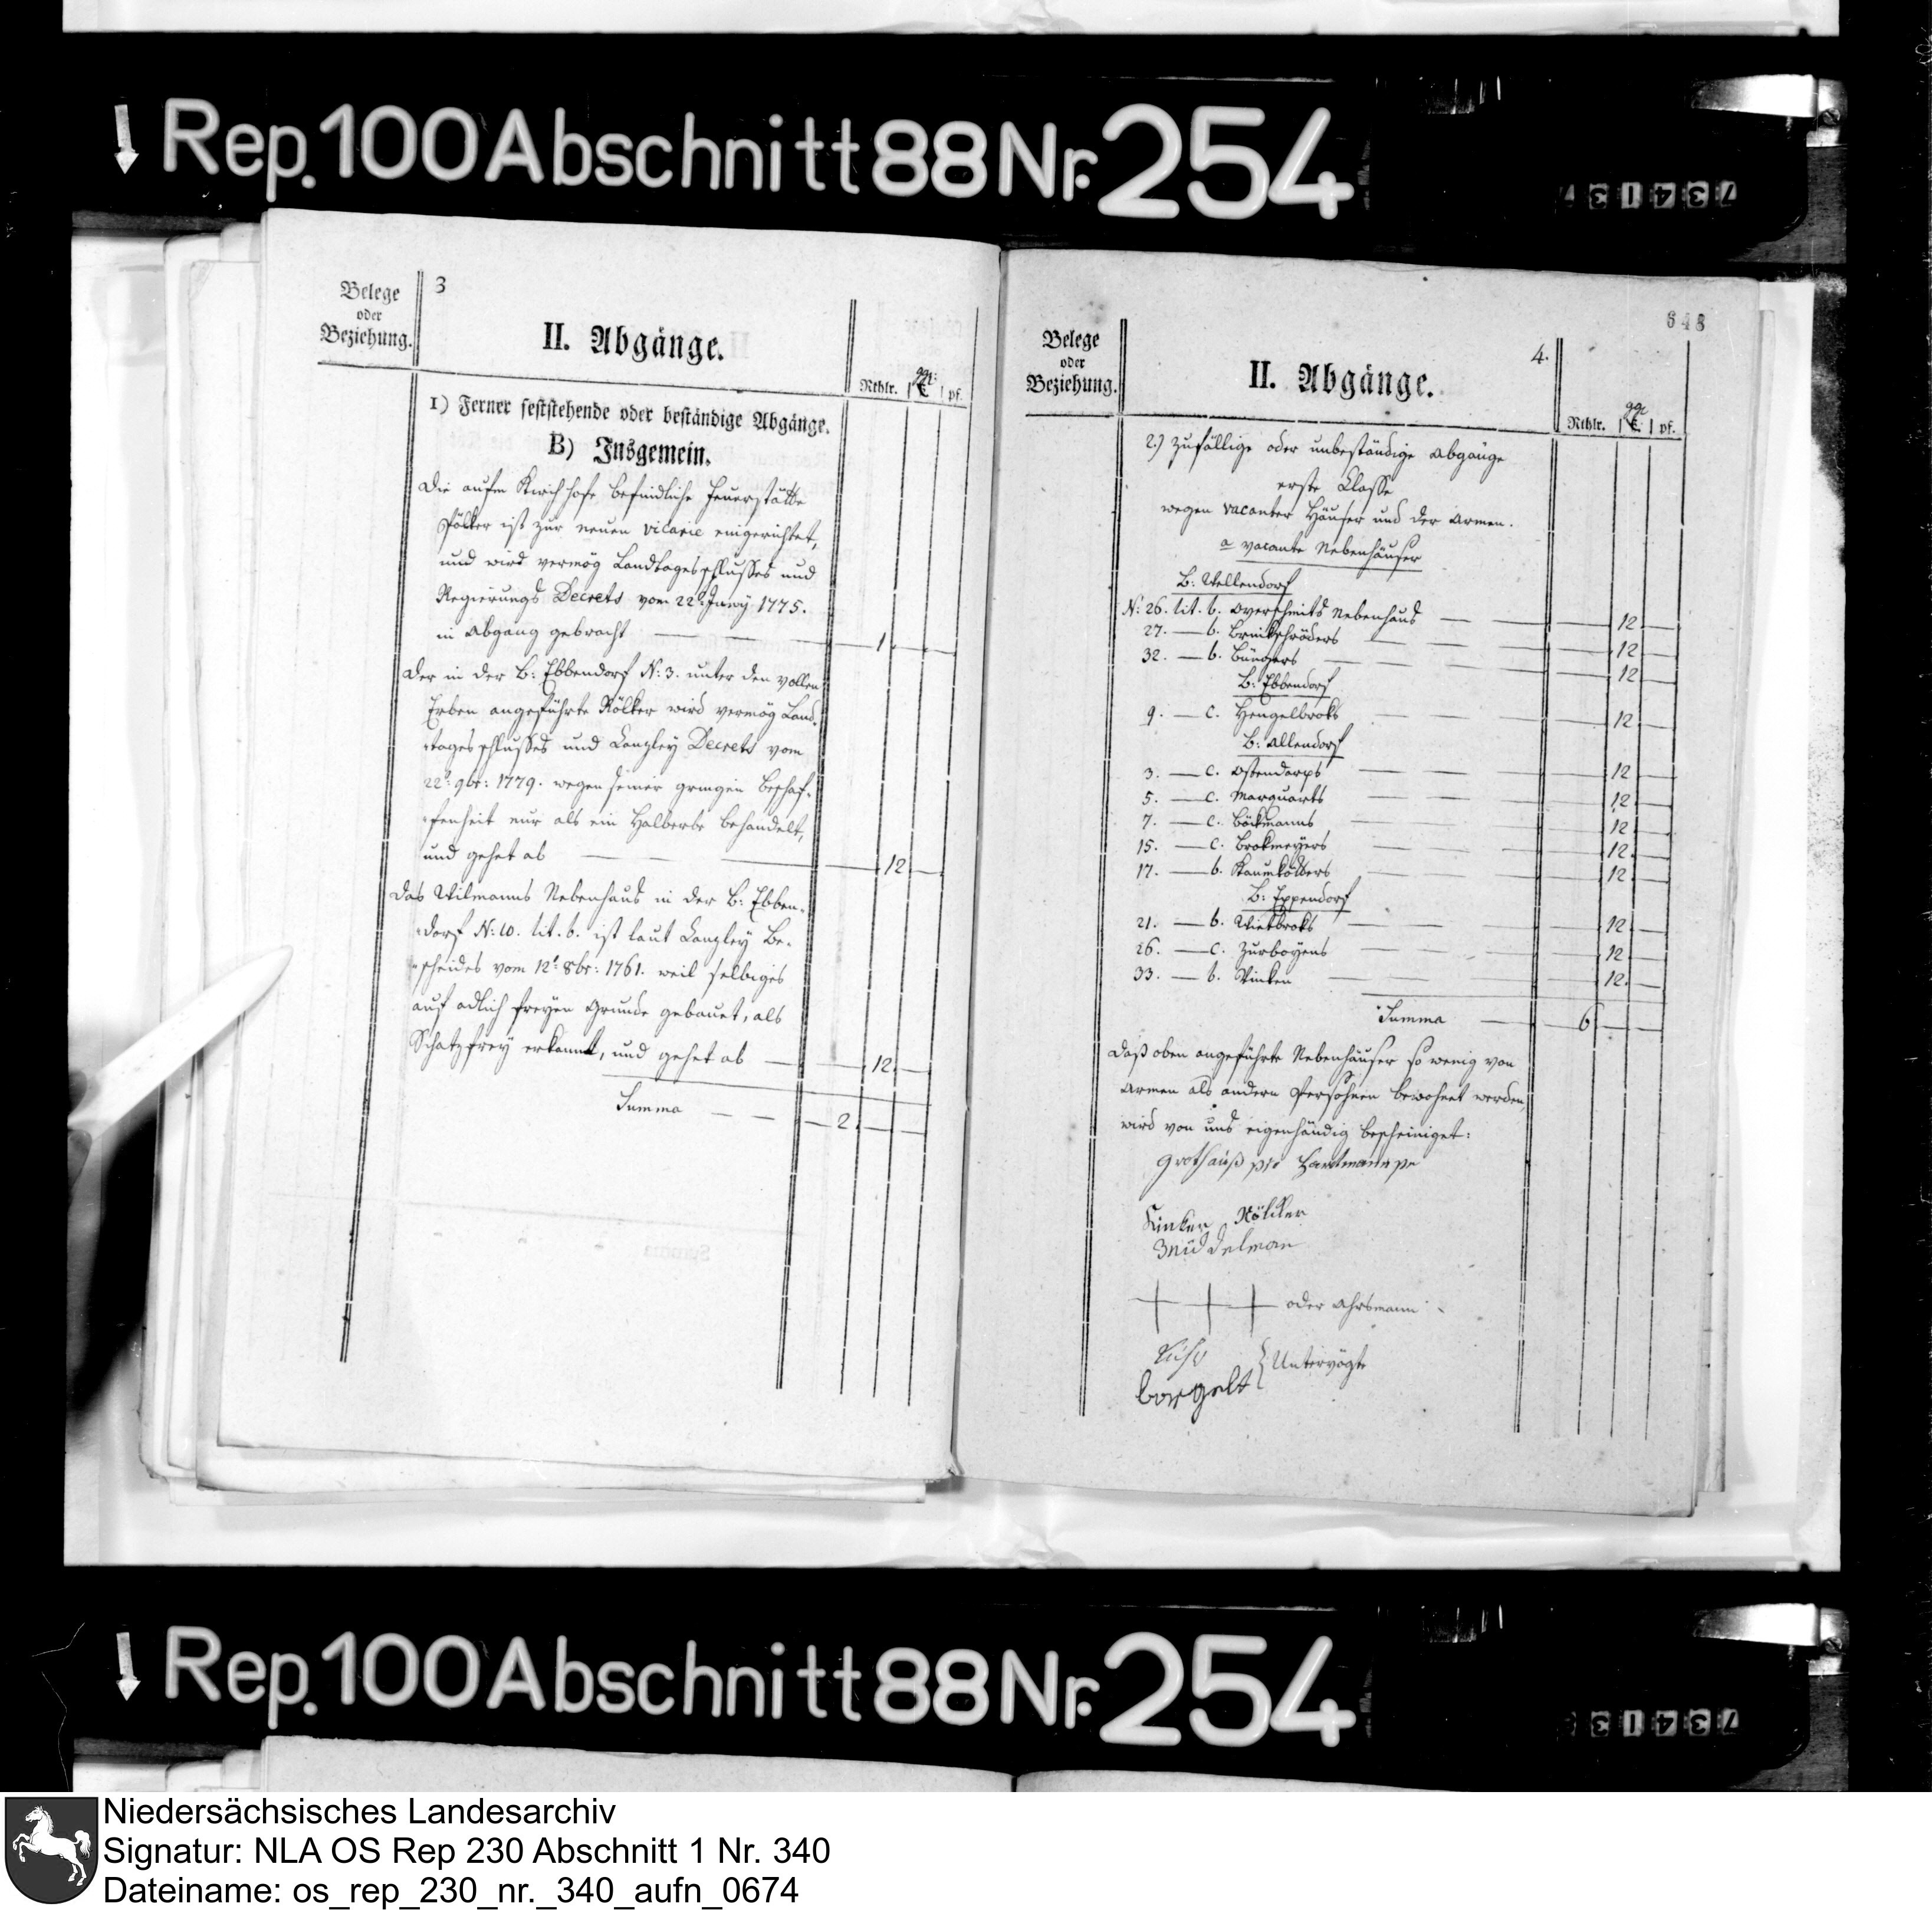 Rep. 100 Abschnitt 88 Nr. 254
734137
3
Belege
oder
Beziehung.
II. Abgänge.
Rthlr. ggr. pf.
1) Ferner feststehende oder beständige Abgänge.
B) Insgemein.
Die aufm Kirchhofe befindliche Feuerstätte
Pölker ist zur neuen vicarie eingerichtet,
und wird vermög Landtagesschlusses und
Regierungs Decrets vom 22t Juny 1775.
in Abgang gebracht — — — 1 — —
Der in der B: Ebbendorf N: 3. unter den vollen
Erben angeführte Rölker wird vermög Land-
tagesschlusses und Canzley Decrets vom
22t 9br: 1779. wegen seiner gringen Beschaf-
fenheit nur als ein Halberbe behandelt,
und gehet ab — — — 12 —
Das Wilmanns Nebenhaus in der B: Ebben-
dorf N: 10. lit. b. ist laut Canzley Be-
scheides vom 12t 8br: 1761. weil selbiges
auf adlich freyen Grunde gebauet, als
Schatzfrey erkannt, und gehet ab — — 12 —
Summa — — 2 — —
648
4.
Belege
oder
Beziehung.
II. Abgänge.
Rthlr. ggr. pf.
2.) Zufällige oder unbeständige Abgänge
erste Classe
wegen vacanter Häuser und der Armen.
a vacante Nebenhäuser
B: Wellendorf
N: 26. lit. b. Overschmits Nebenhaus — — — 12 —
27. — b. Brinkschröders — — — 12 —
32. — b. Büngers — — — 12 —
B: Ebbendorf
9. — c. Hengelbroks — — — 12 —
B: Allendorf
3. — c. Ostendorps — — — 12 —
5. — c. Marquarts — — — 12 —
7. — c. Böckmanns — — — 12 —
15. — c. Brokmeyers — — — 12 —
17. — b. — — — 12 —
B: Eppendorf
21. — b. Wietbroks — — — 12 —
26. — c. Zurboyens — — — 12 —
33. — b. Vinken — — — 12 —
Summa — 6 — —
Daß oben angeführte Nebenhäuser so wenig von
Armen als andern Persohnen bewohnet werden,
wird von uns eigenhändig bescheiniget:
Grothauß pro Hartmann
Rölker
oder Ahrsmann
Untervögte
Borgelt
Rep. 100 Abschnitt 88 Nr. 254
734137
Niedersächsisches Landesarchiv
Signatur: NLA OS Rep 230 Abschnitt 1 Nr. 340
Dateiname: os_rep_230_nr._340_aufn_0674